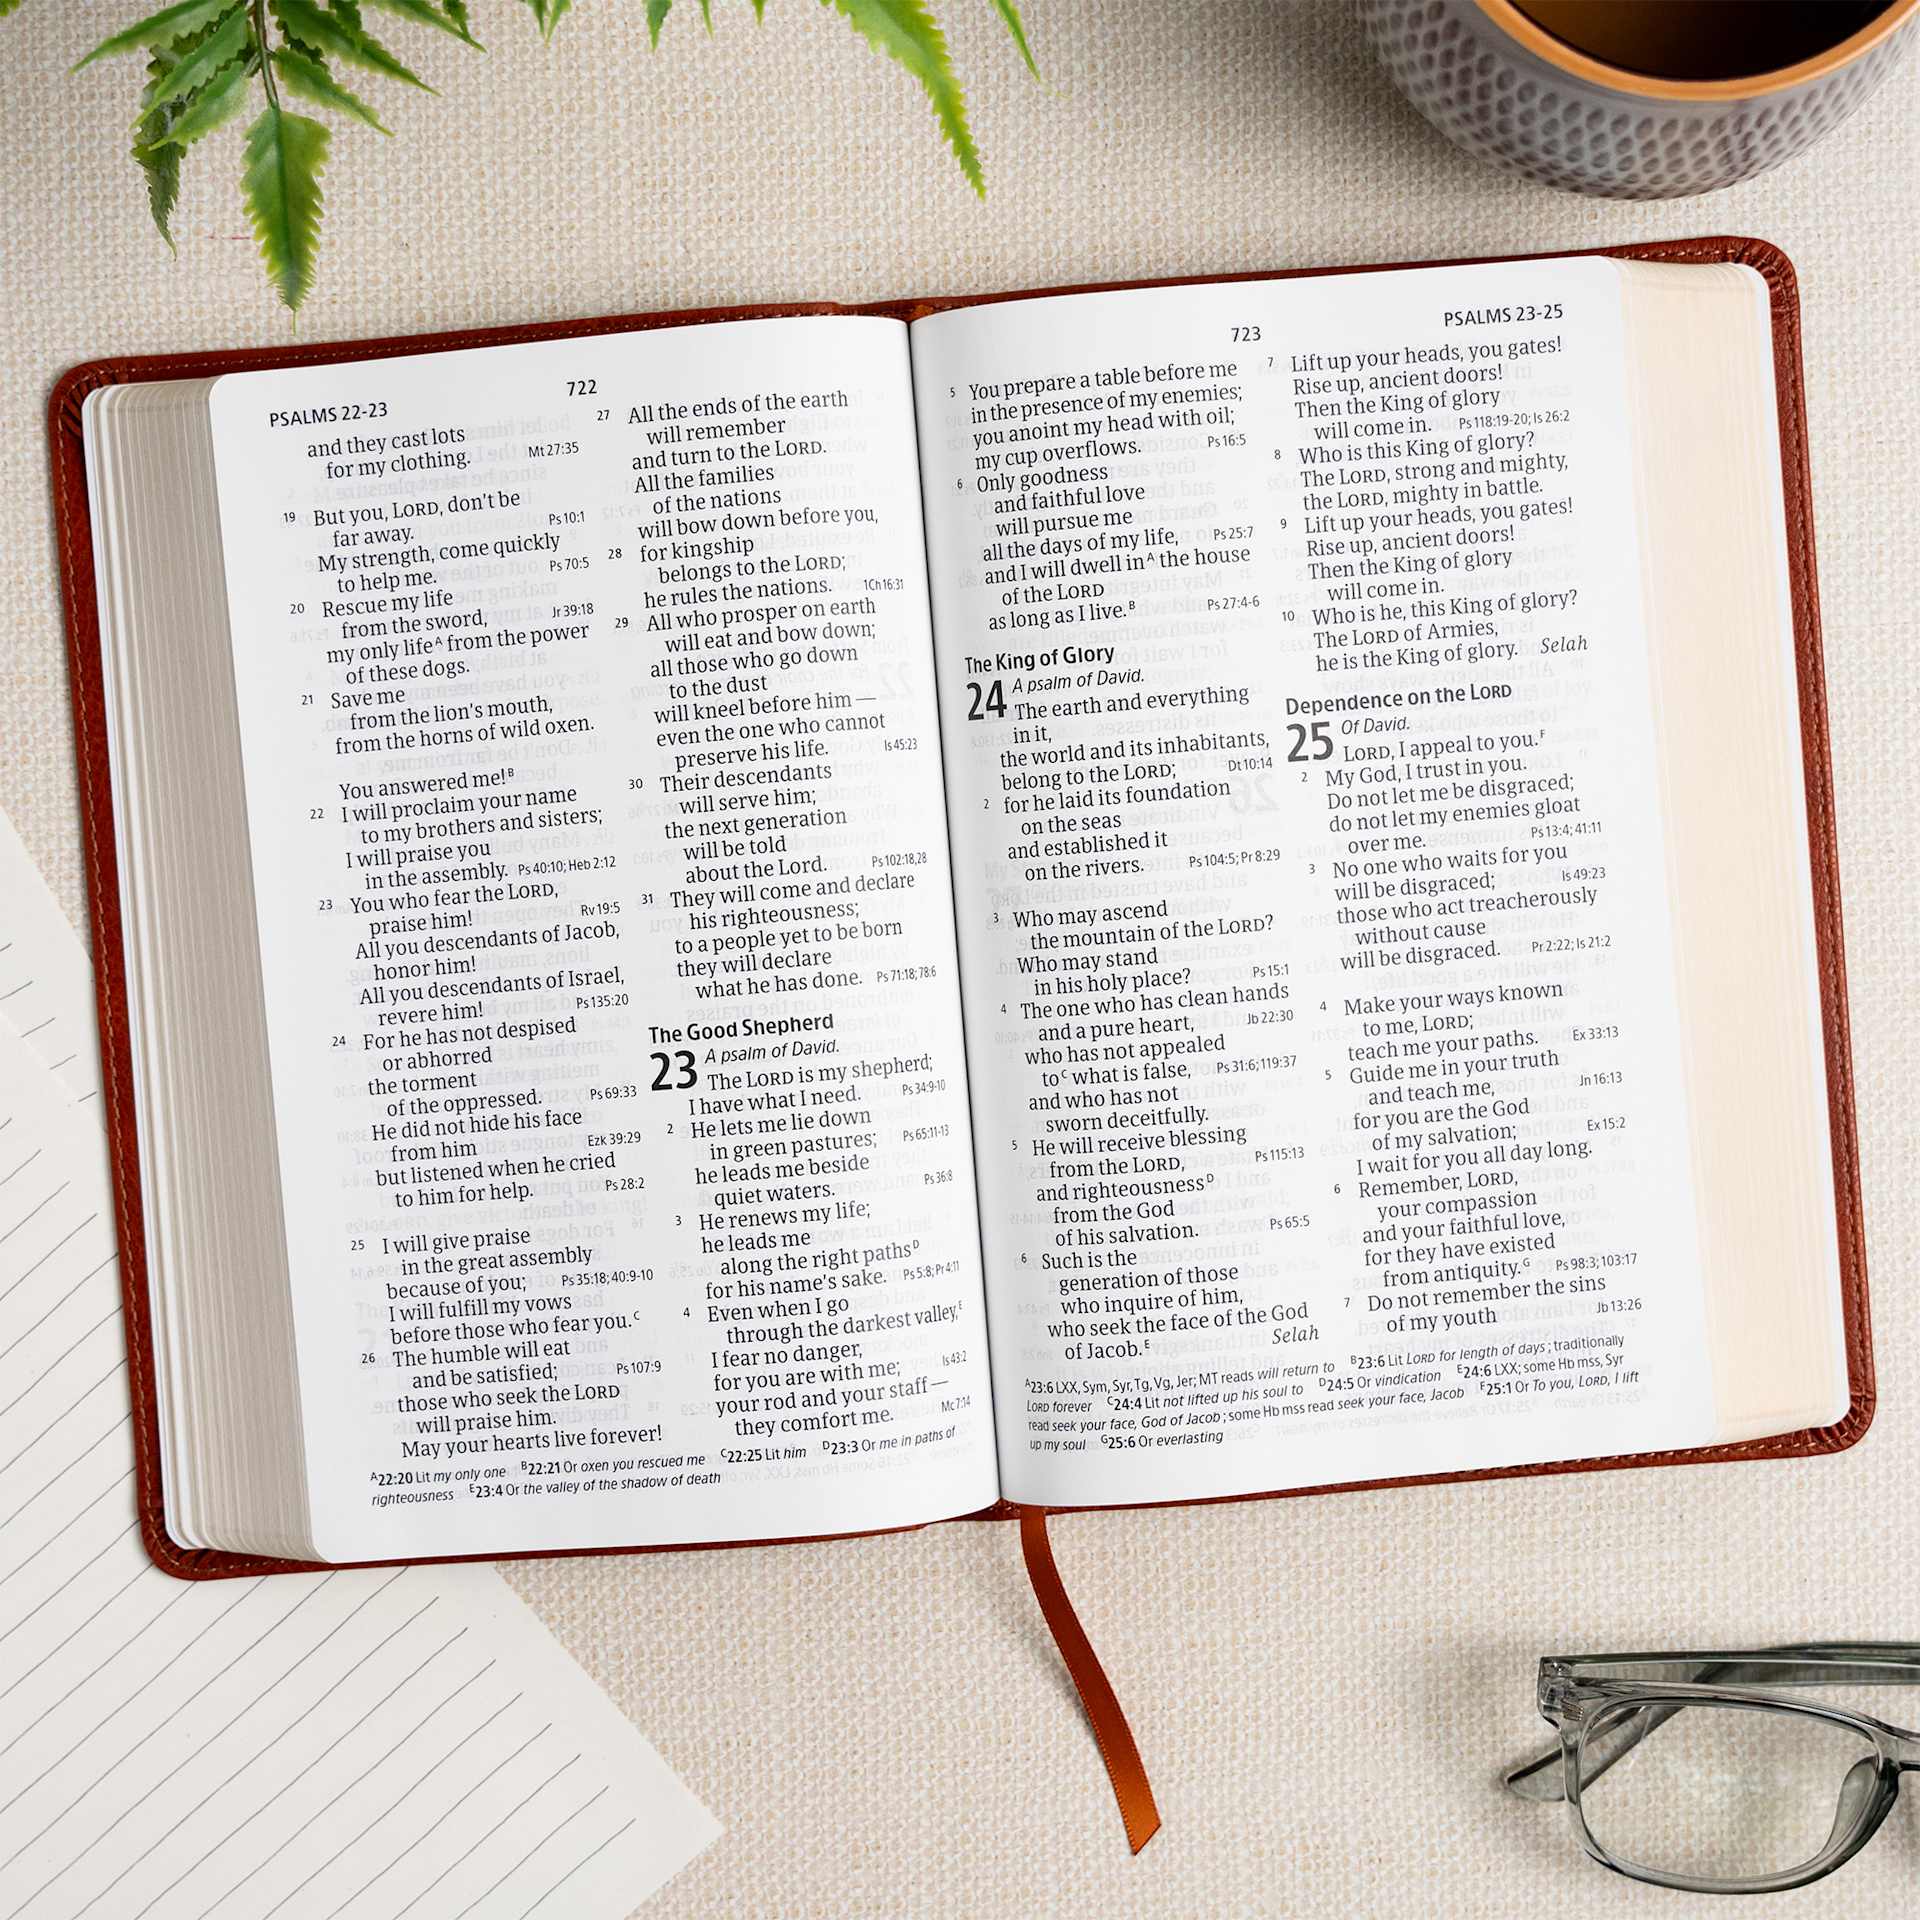 PSALMS 22-23
722
and they cast lots
for my clothing. Mt 27:35
19 But you, LORD, don't be
far away. Ps 10:1
My strength, come quickly
to help me. Ps 70:5
20 Rescue my life
from the sword, Jr 39:18
my only lifeᴬ from the power
of these dogs.
21 Save me
from the lion's mouth,
from the horns of wild oxen.
You answered me!ᴮ
22 I will proclaim your name
to my brothers and sisters;
I will praise you
in the assembly. Ps 40:10; Heb 2:12
23 You who fear the LORD,
praise him! Rv 19:5
All you descendants of Jacob,
honor him!
All you descendants of Israel,
revere him! Ps 135:20
24 For he has not despised
or abhorred
the torment
of the oppressed. Ps 69:33
He did not hide his face
from him Ezk 39:29
but listened when he cried
to him for help. Ps 28:2
25 I will give praise
in the great assembly
because of you; Ps 35:18; 40:9-10
I will fulfill my vows
before those who fear you.ᶜ
26 The humble will eat
and be satisfied; Ps 107:9
those who seek the LORD
will praise him.
May your hearts live forever!
27 All the ends of the earth
will remember
and turn to the LORD.
All the families
of the nations
will bow down before you,
28 for kingship
belongs to the LORD;
he rules the nations. 1Ch 16:31
29 All who prosper on earth
will eat and bow down;
all those who go down
to the dust
will kneel before him —
even the one who cannot
preserve his life. Is 45:23
30 Their descendants
will serve him;
the next generation
will be told
about the Lord. Ps 102:18,28
31 They will come and declare
his righteousness;
to a people yet to be born
they will declare
what he has done. Ps 71:18; 78:6
The Good Shepherd
23 A psalm of David.
The LORD is my shepherd;
I have what I need. Ps 34:9-10
2 He lets me lie down
in green pastures; Ps 65:11-13
he leads me beside
quiet waters. Ps 36:8
3 He renews my life;
he leads me
along the right pathsᴰ
for his name's sake. Ps 5:8; Pr 4:11
4 Even when I go
through the darkest valley,ᴱ
I fear no danger,
for you are with me; Is 43:2
your rod and your staff —
they comfort me. Mc 7:14
ᴬ22:20 Lit my only one ᴮ22:21 Or oxen you rescued me ᶜ22:25 Lit him ᴰ23:3 Or me in paths of
righteousness ᴱ23:4 Or the valley of the shadow of death
723
PSALMS 23-25
5 You prepare a table before me
in the presence of my enemies;
you anoint my head with oil;
my cup overflows. Ps 16:5
6 Only goodness
and faithful love
will pursue me
all the days of my life, Ps 25:7
and I will dwell inᴬ the house
of the LORD
as long as I live.ᴮ Ps 27:4-6
The King of Glory
24 A psalm of David.
The earth and everything
in it,
the world and its inhabitants,
belong to the LORD; Dt 10:14
2 for he laid its foundation
on the seas
and established it
on the rivers. Ps 104:5; Pr 8:29
3 Who may ascend
the mountain of the LORD?
Who may stand
in his holy place? Ps 15:1
4 The one who has clean hands
and a pure heart, Jb 22:30
who has not appealed
toᶜ what is false, Ps 31:6; 119:37
and who has not
sworn deceitfully.
5 He will receive blessing
from the LORD, Ps 115:13
and righteousnessᴰ
from the God
of his salvation. Ps 65:5
6 Such is the
generation of those
who inquire of him,
who seek the face of the God
of Jacob.ᴱ Selah
7 Lift up your heads, you gates!
Rise up, ancient doors!
Then the King of glory
will come in. Ps 118:19-20; Is 26:2
8 Who is this King of glory?
The LORD, strong and mighty,
the LORD, mighty in battle.
9 Lift up your heads, you gates!
Rise up, ancient doors!
Then the King of glory
will come in.
10 Who is he, this King of glory?
The LORD of Armies,
he is the King of glory. Selah
Dependence on the LORD
25 Of David.
LORD, I appeal to you.ꟳ
2 My God, I trust in you.
Do not let me be disgraced;
do not let my enemies gloat
over me. Ps 13:4; 41:11
3 No one who waits for you
will be disgraced; Is 49:23
those who act treacherously
without cause
will be disgraced. Pr 2:22; Is 21:2
4 Make your ways known
to me, LORD;
teach me your paths. Ex 33:13
5 Guide me in your truth
and teach me, Jn 16:13
for you are the God
of my salvation; Ex 15:2
I wait for you all day long.
6 Remember, LORD,
your compassion
and your faithful love,
for they have existed
from antiquity.ᴳ Ps 98:3; 103:17
7 Do not remember the sins
of my youth Jb 13:26
ᴬ23:6 LXX, Sym, Syr, Tg, Vg, Jer; MT reads will return to ᴮ23:6 Lit LORD for length of days; traditionally
LORD forever ᶜ24:4 Lit not lifted up his soul to ᴰ24:5 Or vindication ᴱ24:6 LXX; some Hb mss, Syr
read seek your face, God of Jacob; some Hb mss read seek your face, Jacob ꟳ25:1 Or To you, LORD, I lift
up my soul ᴳ25:6 Or everlasting